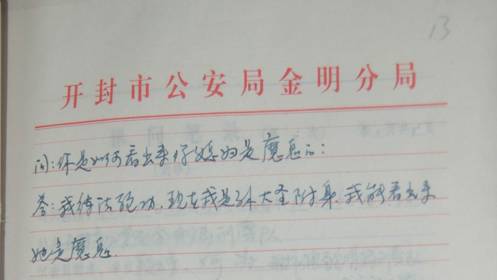 13
开封市公安局金明分局
问:你是如何看出来你妈是魔鬼的:
答:我练法轮功,现在我是孙大圣附身,我能看出来
她是魔鬼.